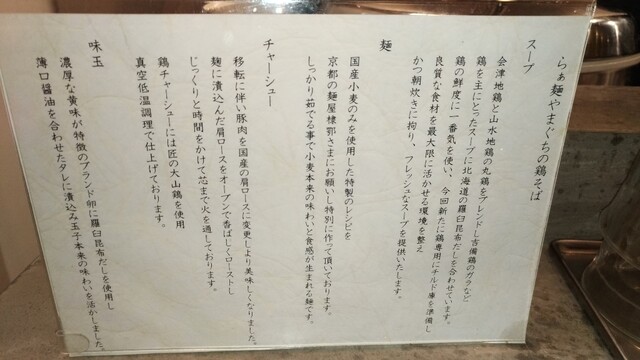 らぁ麺やまぐちの鶏そば
スープ
会津地鶏と山水地鶏の丸鶏をブレンドし吉備鶏のガラなど
鶏を主にとったスープに北海道の羅臼昆布だしを合わせています。
鶏の鮮度に一番気を使い、今回新たに鶏専用にチルド庫を準備し
良質な食材を最大限に活かせる環境を整え
かつ朝炊きに拘り、フレッシュなスープを提供いたします。
麺
国産小麦のみを使用した特製のレシピを
京都の麺屋棣鄂さまにお願いし特別に作って頂いております。
しっかり茹でる事で小麦本来の味わいと食感が生まれる麺です。
チャーシュー
移転に伴い豚肉を国産の肩ロースに変更しより美味しくなりました。
麹に漬込んだ肩ロースをオーブンで香ばしくローストし
じっくりと時間をかけて芯まで火を通しております。
鶏チャーシューには匠の大山鶏を使用
真空低温調理で仕上げております。
味玉
濃厚な黄味が特徴のブランド卵に羅臼昆布だしを使用し
薄口醤油を合わせたタレに漬込み玉子本来の味わいを活かしました。